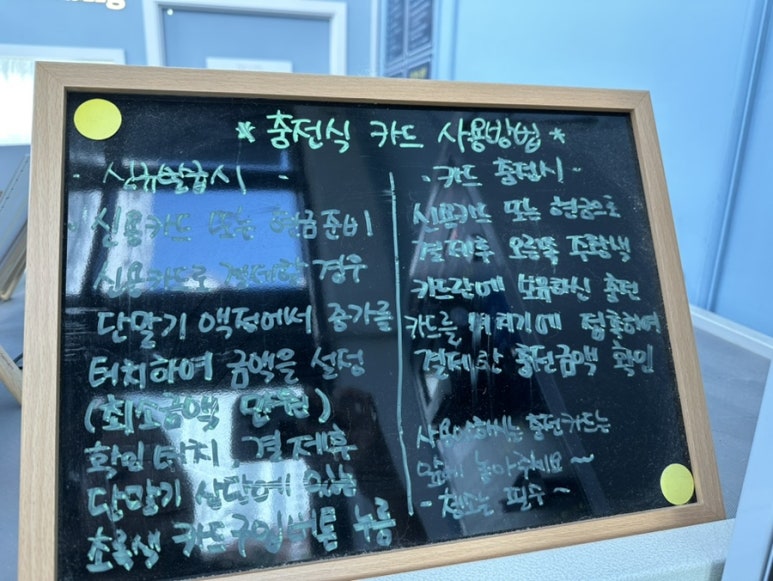 * 충전식 카드 사용방법 *
- 신규발급시 -
신용카드 또는 현금준비
신용카드로 결제할 경우
단말기 액정에서 증가를
터치하여 금액을 설정
(최초금액 만원)
확인터치, 결제후
단말기 상단에 있는
초록색 카드구입버튼 누름
- 카드 충전시 -
신용카드 또는 현금으로
결제후 오른쪽 주황색
카드란에 보유하신 충전
카드를 기에 접촉하여
결제한 충전금액 확인
충전카드는
놓아주세요~
필수~